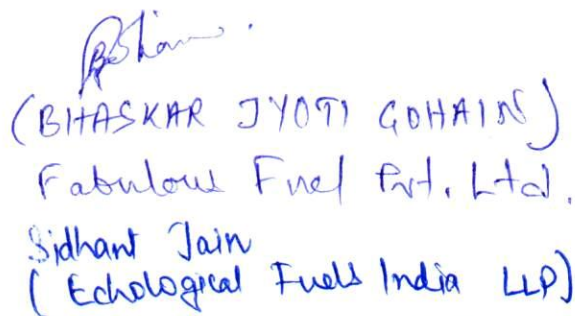 (BHASKAR JYOTI GOHAIN)
Fabulous Fuel Pvt. Ltd.
Sidhant Jain
(Echological Fuels India LLP)